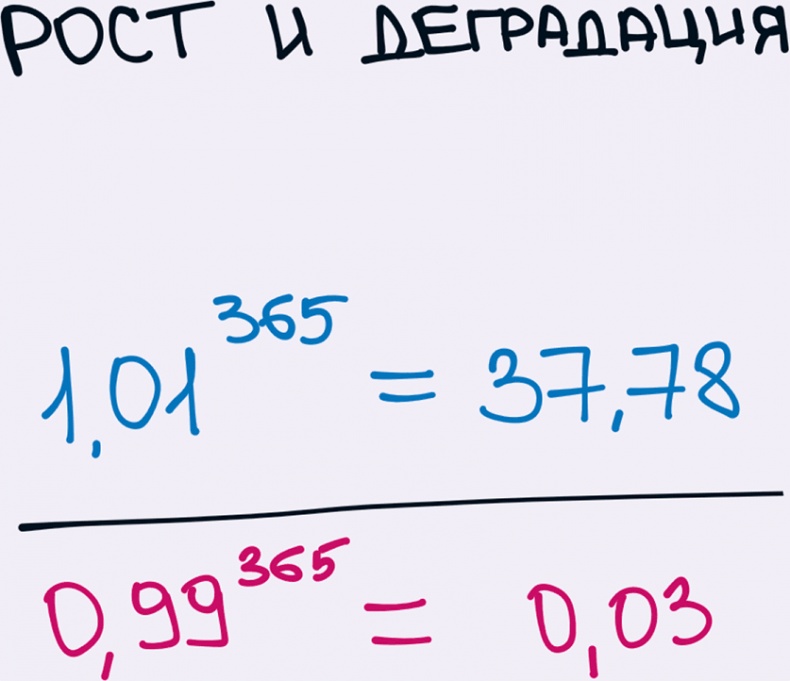 РОСТ И ДЕГРАДАЦИЯ
1,01³⁶⁵ = 37,78
0,99³⁶⁵ = 0,03